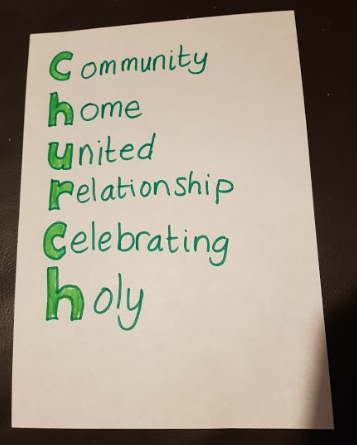 Community
home
united
relationship
Celebrating
holy